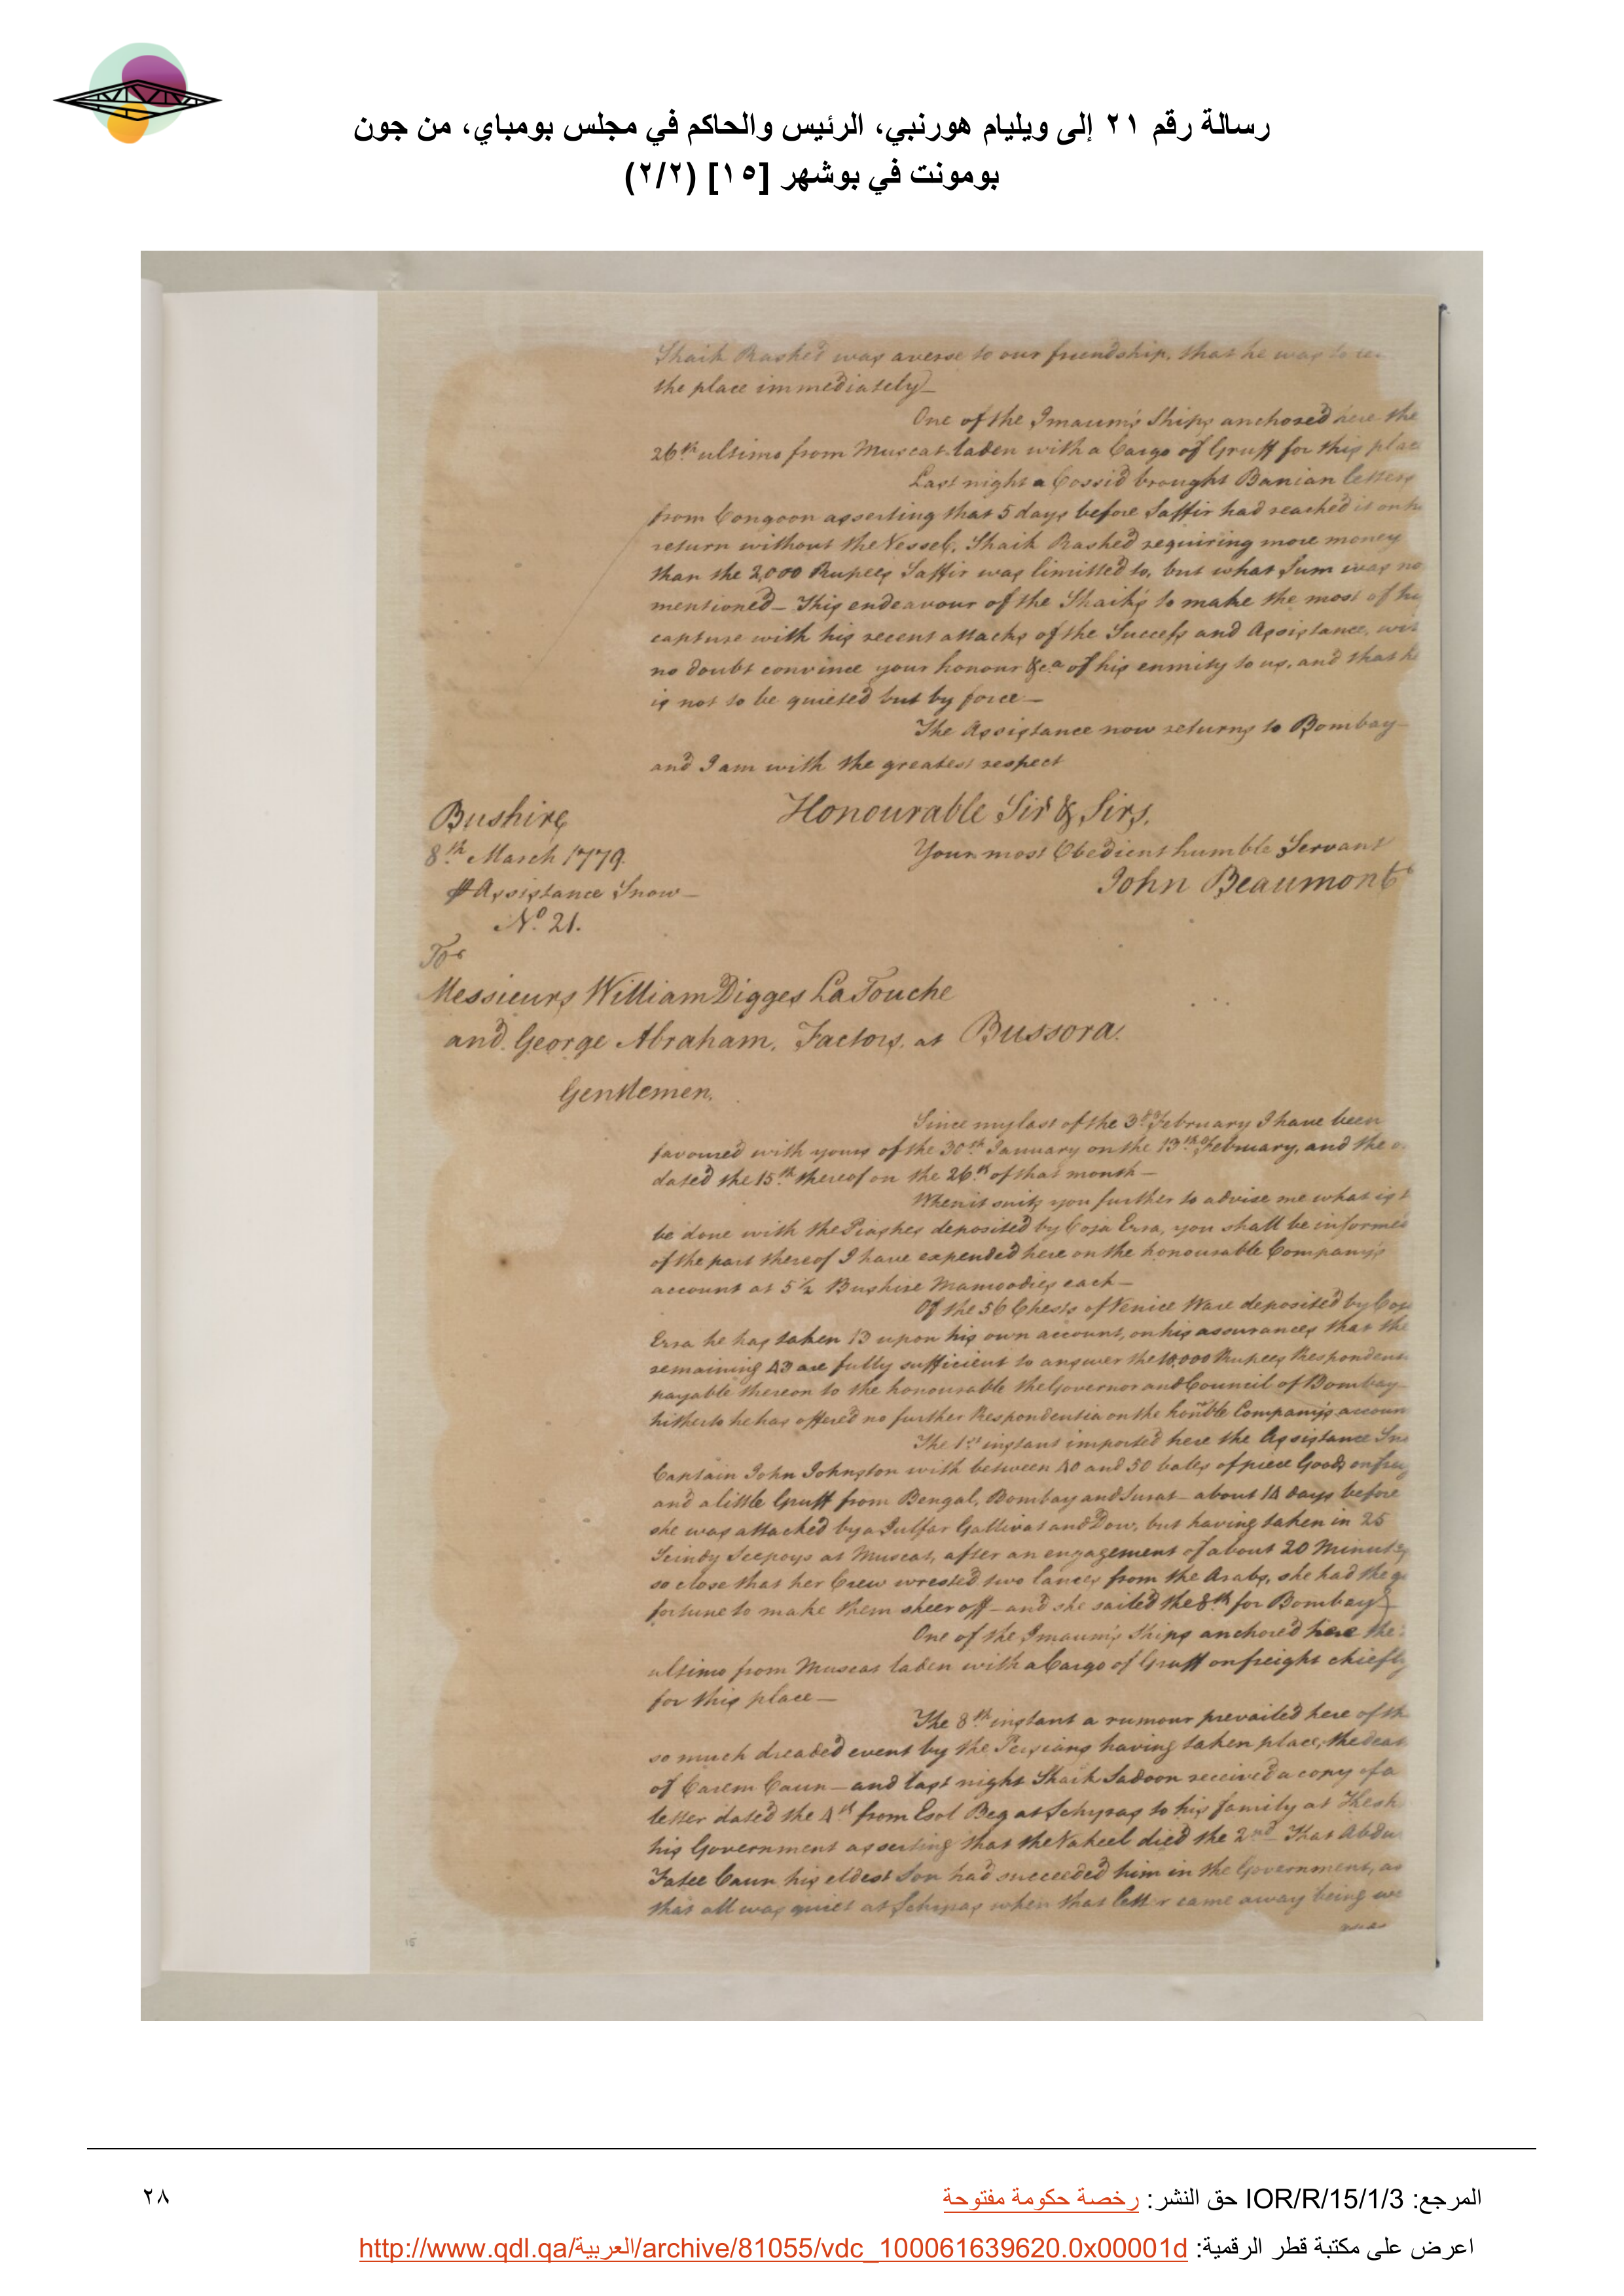 رسالة رقم ٢١ إلى ويليام هورنبي، الرئيس والحاكم في مجلس بومباي، من جون
بومونت في بوشهر [١٥] (٢/٢)
Shaik Rashed was averse to our friendship, that he was to
the place immediately_
One of the Imaum's Ships anchored here the
26th ultimo from Muscat laden with a Cargo of Gruff for this
Last night a Cossid brought Banian letters
from Congoon asserting that 5 days before Saffir had reached it on
return without the Vessel, Shaik Rashed requiring more money
than the 2,000 Rupees Saffir was limitted to, but what Sum was
mentioned_ This endeavour of the Shaik's to make the most of
capture with his recent attacks of the Success and Assistance,
no doubt convince your honour &ca of his enmity to us, and that
is not to be quieted but by force_
The Assistance now returns to Bombay_
and I am with the greatest respect
Honourable Sir & Sirs,
Bushire
Your most Obedient humble Servant
8th March 1779.
John Beaumont
Assistance Snow_
No. 21.
To
Messieurs William Digges LaTouche
and George Abraham, Factors, at Bussora.
Gentlemen,
Since my last of the 3d February I have been
favoured with yours of the 30th January on the 13th February, and the
dated the 15th thereof on the 26th of that month_
When it suits you further to advise me what is
be done with the Piashes deposited by Coja Erra, you shall be
of the part thereof I have expended here on the honourable Company's
account at 5½ Bushire Mamoodies each_
Of the 56 Chests of Venice Ware deposited by
Erra he has taken 13 upon his own account, on his assurances that the
remaining 43 are fully sufficient to answer the 10,000 Rupees
payable thereon to the honourable the Governor and Council of Bombay
hitherto he has offered no further Respondentia on the honble Company's
The 1st instant imported here the Assistance
Captain John Johnston with between 40 and 50 bales of piece Goods on
and a little Gruff from Bengal, Bombay and Surat_ about 14 days before
she was attacked by a Julfar Gallivat and Dow, but having taken in 25
Scindy Seepoys at Muscat, after an engagement of about 20 Minutes
so close that her Crew wrested two lances from the Arabs, she had the
fortune to make them sheer off_ and she sailed the 8th for Bombay_
One of the Imaum's Ships anchored here the
ultimo from Muscat laden with a Cargo of Gruff on freight chiefly
for this place_
The 8th instant a rumour prevailed here of
so much dreaded event by the Persians having taken place, the
of Carem Caun_ and last night Shaik Sadoon received a copy of a
letter dated the 4th from Esol Beg at Schyras to his family at
his Government asserting that the Vakeel died the 2nd That
Fatee Caun his eldest Son had succeeded him in the Government,
that all was quiet at Schyras when that letter came away being
15
المرجع: IOR/R/15/1/3 حق النشر: رخصة حكومة مفتوحة
٢٨
اعرض على مكتبة قطر الرقمية: http://www.qdl.qa/العربية/archive/81055/vdc_100061639620.0x00001d